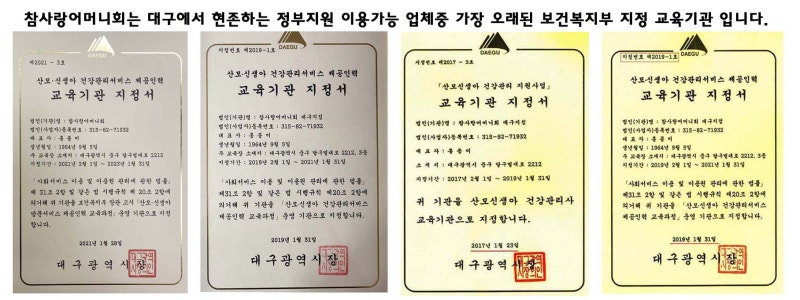 참사랑어머니회는 대구에서 현존하는 정부지원 이용가능 업체중 가장 오래된 보건복지부 지정 교육기관 입니다.
DAEGU
제2021 - 3호
산모·신생아 건강관리서비스 제공인력
교육기관 지정서
법인(기관)명 : 참사랑어머니회 대구지점
법인(사업자)등록번호 : 315-82-71932
대 표 자 :
생년월일 : 1964년 9월 5일
주 교육장 소재지 : 대구광역시 중구 달구벌대로 2212, 3층
지정기간 : 2021년 2월 1일 ~ 2023년 1월 31일
「사회서비스 이용 및 이용권 관리에 관한 법률」
제31조 2항 및 같은 법 시행규칙 제20조 2항에
의거해 위 기관을 보건복지부 장관 고시 「산모·신생아
방문서비스 제공인력 교육과정」 운영 기관으로 지정
합니다.
2021년 1월 28일
대구광역시장
DAEGU
지정번호 제2019-1호
산모·신생아 건강관리서비스 제공인력
교육기관 지정서
법인(기관)명 : 참사랑어머니회 대구지점
법인(사업자)등록번호 : 315-82-71932
대 표 자 :
생년월일 : 1964년 9월 5일
주 교육장 소재지 : 대구광역시 중구 달구벌대로 2212, 3층
지정기간 : 2019년 2월 1일 ~ 2021년 1월 31일
「사회서비스 이용 및 이용권 관리에 관한 법률」
제31조 2항 및 같은 법 시행규칙 제20조 2항에
의거해 위 기관을 「산모·신생아 건강관리서비스
제공인력 교육과정」 운영 기관으로 지정합니다.
2019년 1월 31일
대구광역시장
DAEGU
지정번호 제2017 - 3호
「산모·신생아 건강관리 지원사업」
교육기관 지정서
법인(기관)명 : 참사랑어머니회 대구지점
법인(사업자)등록번호 : 315-82-71932
대 표 자 :
소 재 지 : 대구광역시 중구 달구벌대로 2212
지정기간 : 2017년 2월 1일 ~ 2019년 1월 31일
위 기관을 산모신생아 건강관리사
교육기관으로 지정합니다.
2017년 1월 23일
대구광역시장
DAEGU
지정번호 제2019-1호
산모·신생아 건강관리서비스 제공인력
교육기관 지정서
법인(기관)명 : 참사랑어머니회 대구지점
법인(사업자)등록번호 : 315-82-71932
대 표 자 :
생년월일 : 1964년 9월 5일
주 교육장 소재지 : 대구광역시 중구 달구벌대로 2212, 3층
지정기간 : 2019년 2월 1일 ~ 2021년 1월 31일
「사회서비스 이용 및 이용권 관리에 관한 법률」
제31조 2항 및 같은 법 시행규칙 제20조 2항에
의거해 위 기관을 「산모·신생아 건강관리서비스
제공인력 교육과정」 운영 기관으로 지정합니다.
2019년 1월 31일
대구광역시장